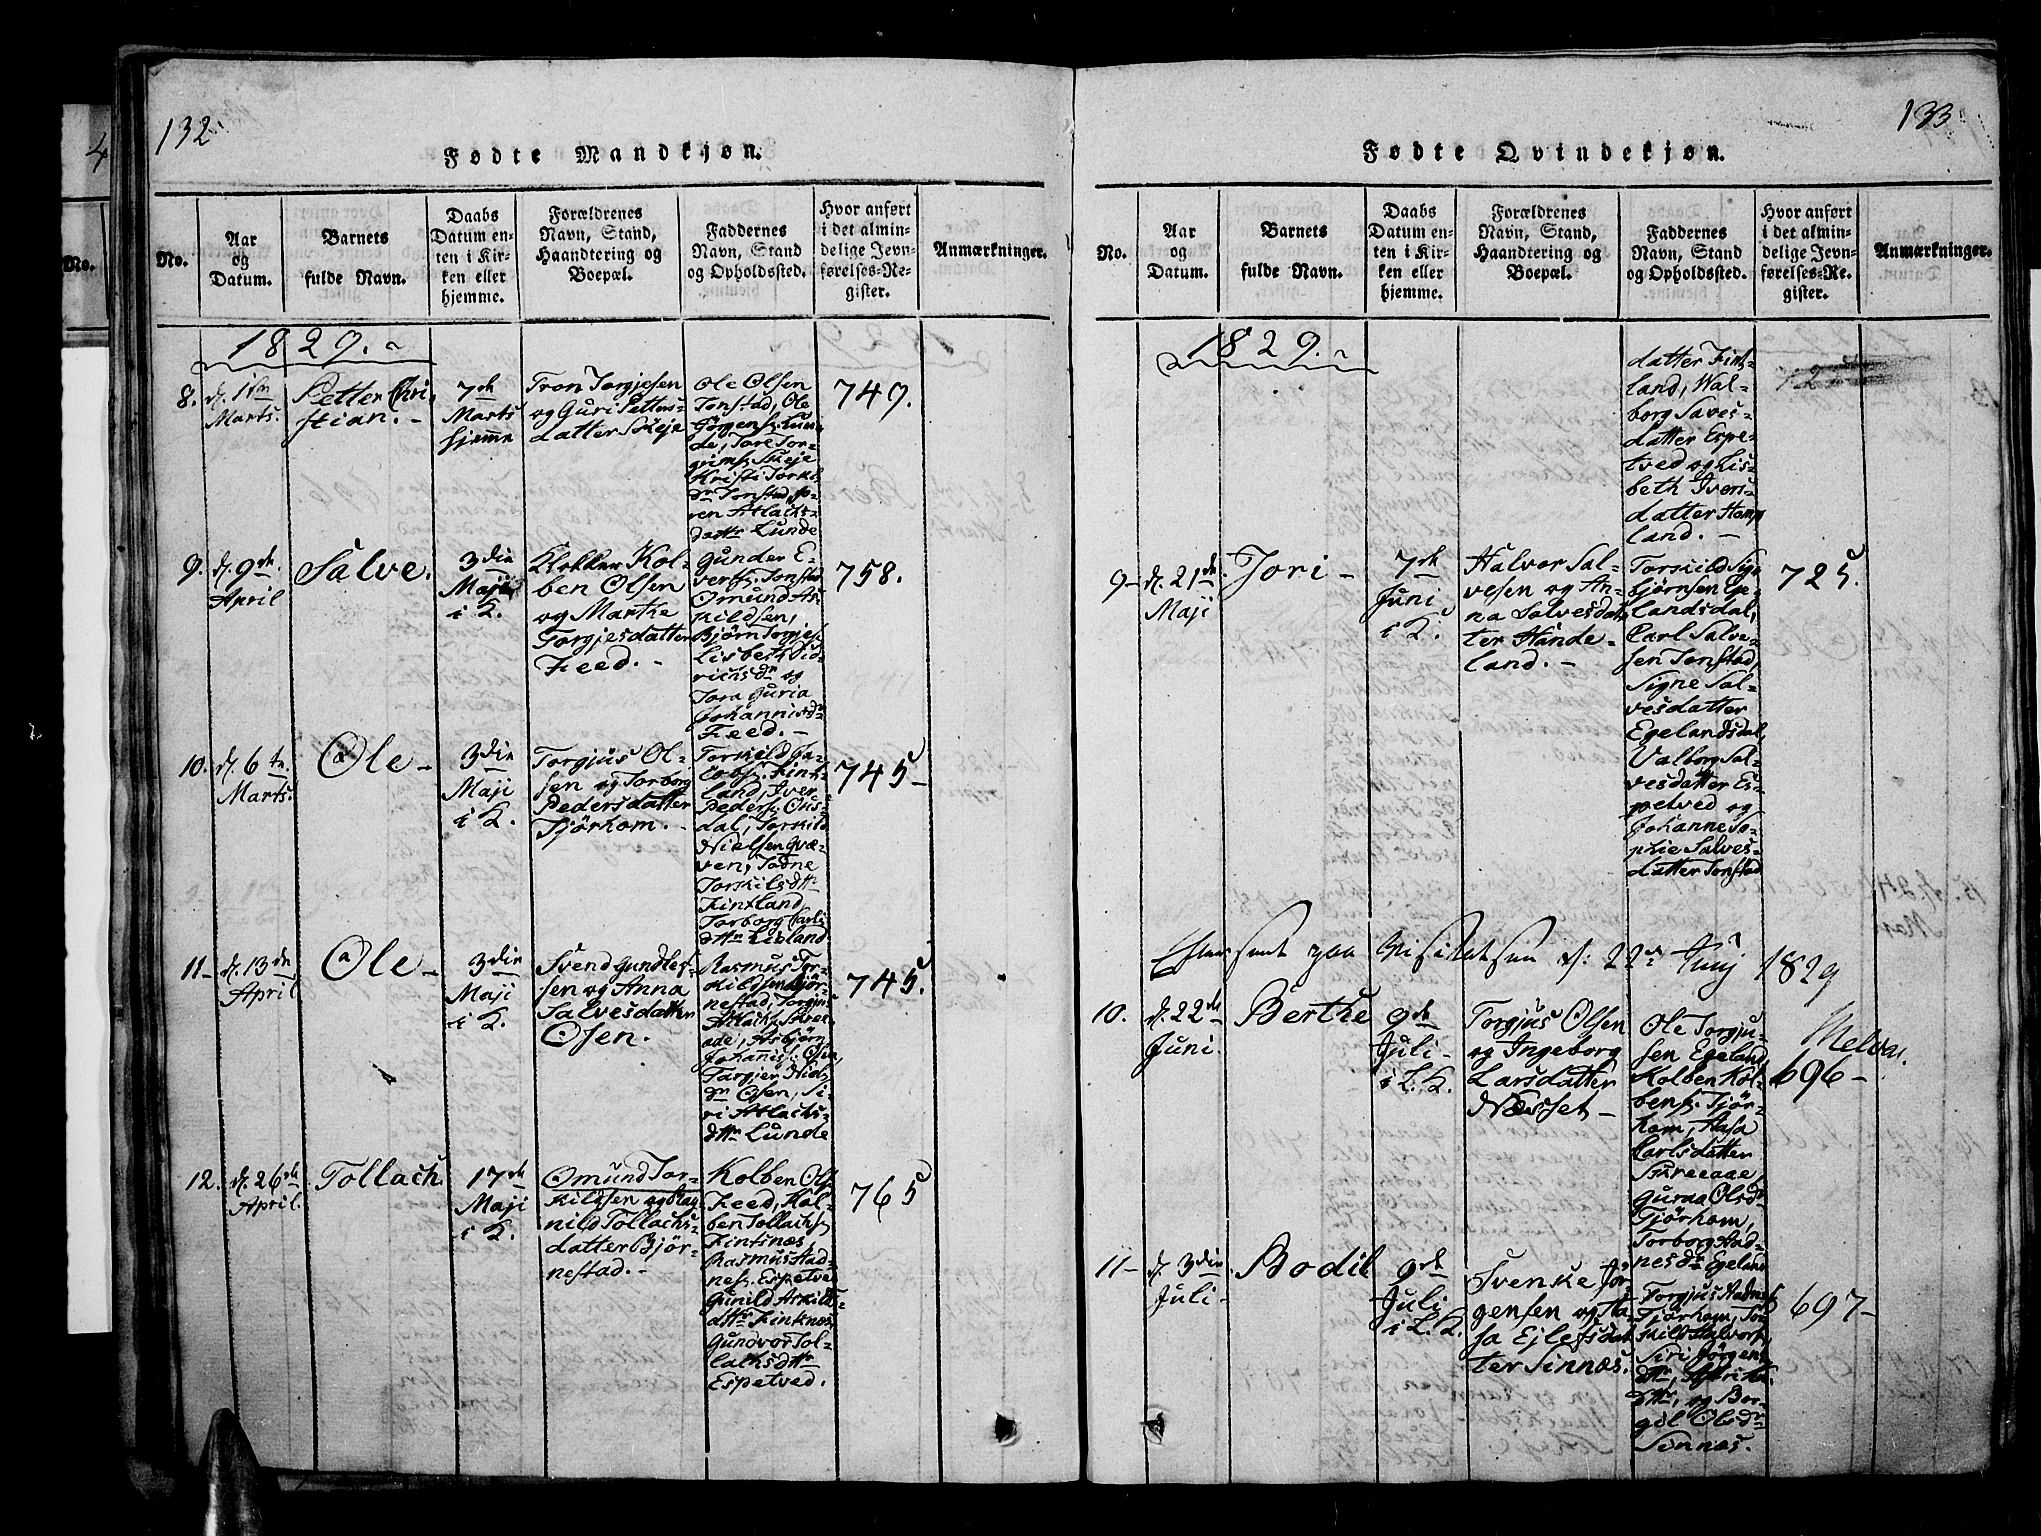 132
Fødte Mandkjøn.
No.
Aar
og
Datum.
Barnets
fulde Navn.
Daabs
Datum en-
ten i Kir-
ken eller
hjemme.
Forældrenes
Navn, Stand,
Haandtering og
Boepæl.
Faddernes
Navn, Stand
og Opholdssted.
Hvor anført
i det almin-
delige Jevn-
førelses-Re-
gister.
Anmærkninger.
1829.
8.
d. 1ste
Marts.
Petter Chri-
stian.
7de
Marts
hjemme
Tron Torgjesen
og Guri Petters-
datter Skeje
Ole Olsen
Tonstad, Ole
Jørgens. Lun-
de, Tore Tor-
grims. Skeje
Kristi Torkils
dr Tonstad, So-
ren Atlachs-
dattr Lunde
749.
9.
d. 9de
April
Salve.
3die
Maji
i K.
Klokker Kol-
ben Olsen
og Marthe
Torgjesdatter
Feed.
Gunder E-
verts. Tonstad
Omund As-
kildsen,
Bjørn Torgjes.
Lisbeth Did-
richsdr og
Tora Guria
Johannisdr
Feed.
758.
10.
d. 6te
Marts.
Ole
3die
Maji
i K.
Torgjus Ol-
sen og Torborg
Pedersdatter
Tjørhom.
Torskild Ja-
cobs. Fint-
land, Iver
Peders. Ous-
dal, Torskild
Nielsen Qvæ-
ven, Tadne
Torskilsdttr
Fintland,
Torborg Carls
dttr Lisland
745
11
d. 13de
April
Ole
3die
Maji
i K.
Svend Gundles-
sen og Anna
Salvesdatter
Osen.
Rasmus Tor-
kildsen Bjør-
nestad, Torgim
Atlachs.
Asbjørn
Johannis. Osen,
Targjer Niels
dr Osen, Si-
ri Atlachs-
dttr Lunde
745.
12.
d. 26de
April.
Tollach.
17de
Maji
i K.
Omund Tor-
kildsen og Rag-
nild Tollachs-
datter Bjør-
nestad.
Kolben Ols.
Feed, Kol-
ben Tollachs.
Fintsnæs,
Rasmus Aad-
nes. Espetved
Gunild Askilds-
dttr Finknæs,
Gundvor Tol-
lachsdttr
Espetved.
765
133
Fødte Qvindekjøn.
No.
Aar
og
Datum.
Barnets
fulde Navn.
Daabs
Datum en-
ten i Kir-
ken eller
hjemme.
Forældrenes
Navn, Stand,
Haandtering og
Boepæl.
Faddernes
Navn, Stand
og Opholdssted.
Hvor anført
i det almin-
delige Jevn-
førelses-Re-
gister.
Anmærkninger.
1829.
datter Fint-
land, Wal-
borg Saves-
datter Espe-
tved og Lis-
beth Ivers-
datter Homp
land.
9
d. 21de
Maji
Jori
7de
Juni
i K.
Halvor Sal-
vesen og An-
na Salvesdat-
ter Hånde-
land.
Torskild Sig-
bjørnsen Ege-
landsdal,
Carl Salve-
sen Tonstad,
Signe Sal-
vesdatter
Egelandsdal,
Valborg Sal-
vesdatter Es-
petved og
Johanne So-
phie Salves-
datter Tonstad
725.
Efterseet paa Visitatsen d: 22de Juuj 1829
10.
d. 22de
Juni.
Berthe
9de
Juli
i L. K.
Torgjus Olsen
og Ingeborg
Larsdatter
Næsset
Ole Torgju-
sen Egeland
Kolben Kol-
bens. Tjør-
hom, Aasa
Carlsdatter
Skreeaae,
Guraa Olsdr
Tjørhom,
Torborg Aad-
nesdr Egeland
696
11
d. 3die
Juli
Bodil
9de
Juli
i L. K.
Svenske Jør-
gensen og Aa-
sa Ejlefsdat
ter Sinnæs.
Torgjus Aadnes.
Tjørhom, Tor-
kild Halvors.
Siri Jørgens
dttr,
dttr, og Bor-
gil Olsdr
Sinnæs.
697